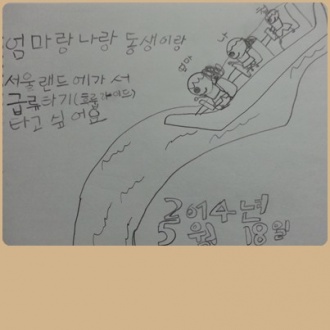 엄마랑 나랑 동생이랑
서울랜드에가서
급류타기(후룸라이드)
타고싶어요
엄마
2014년
5월 18일